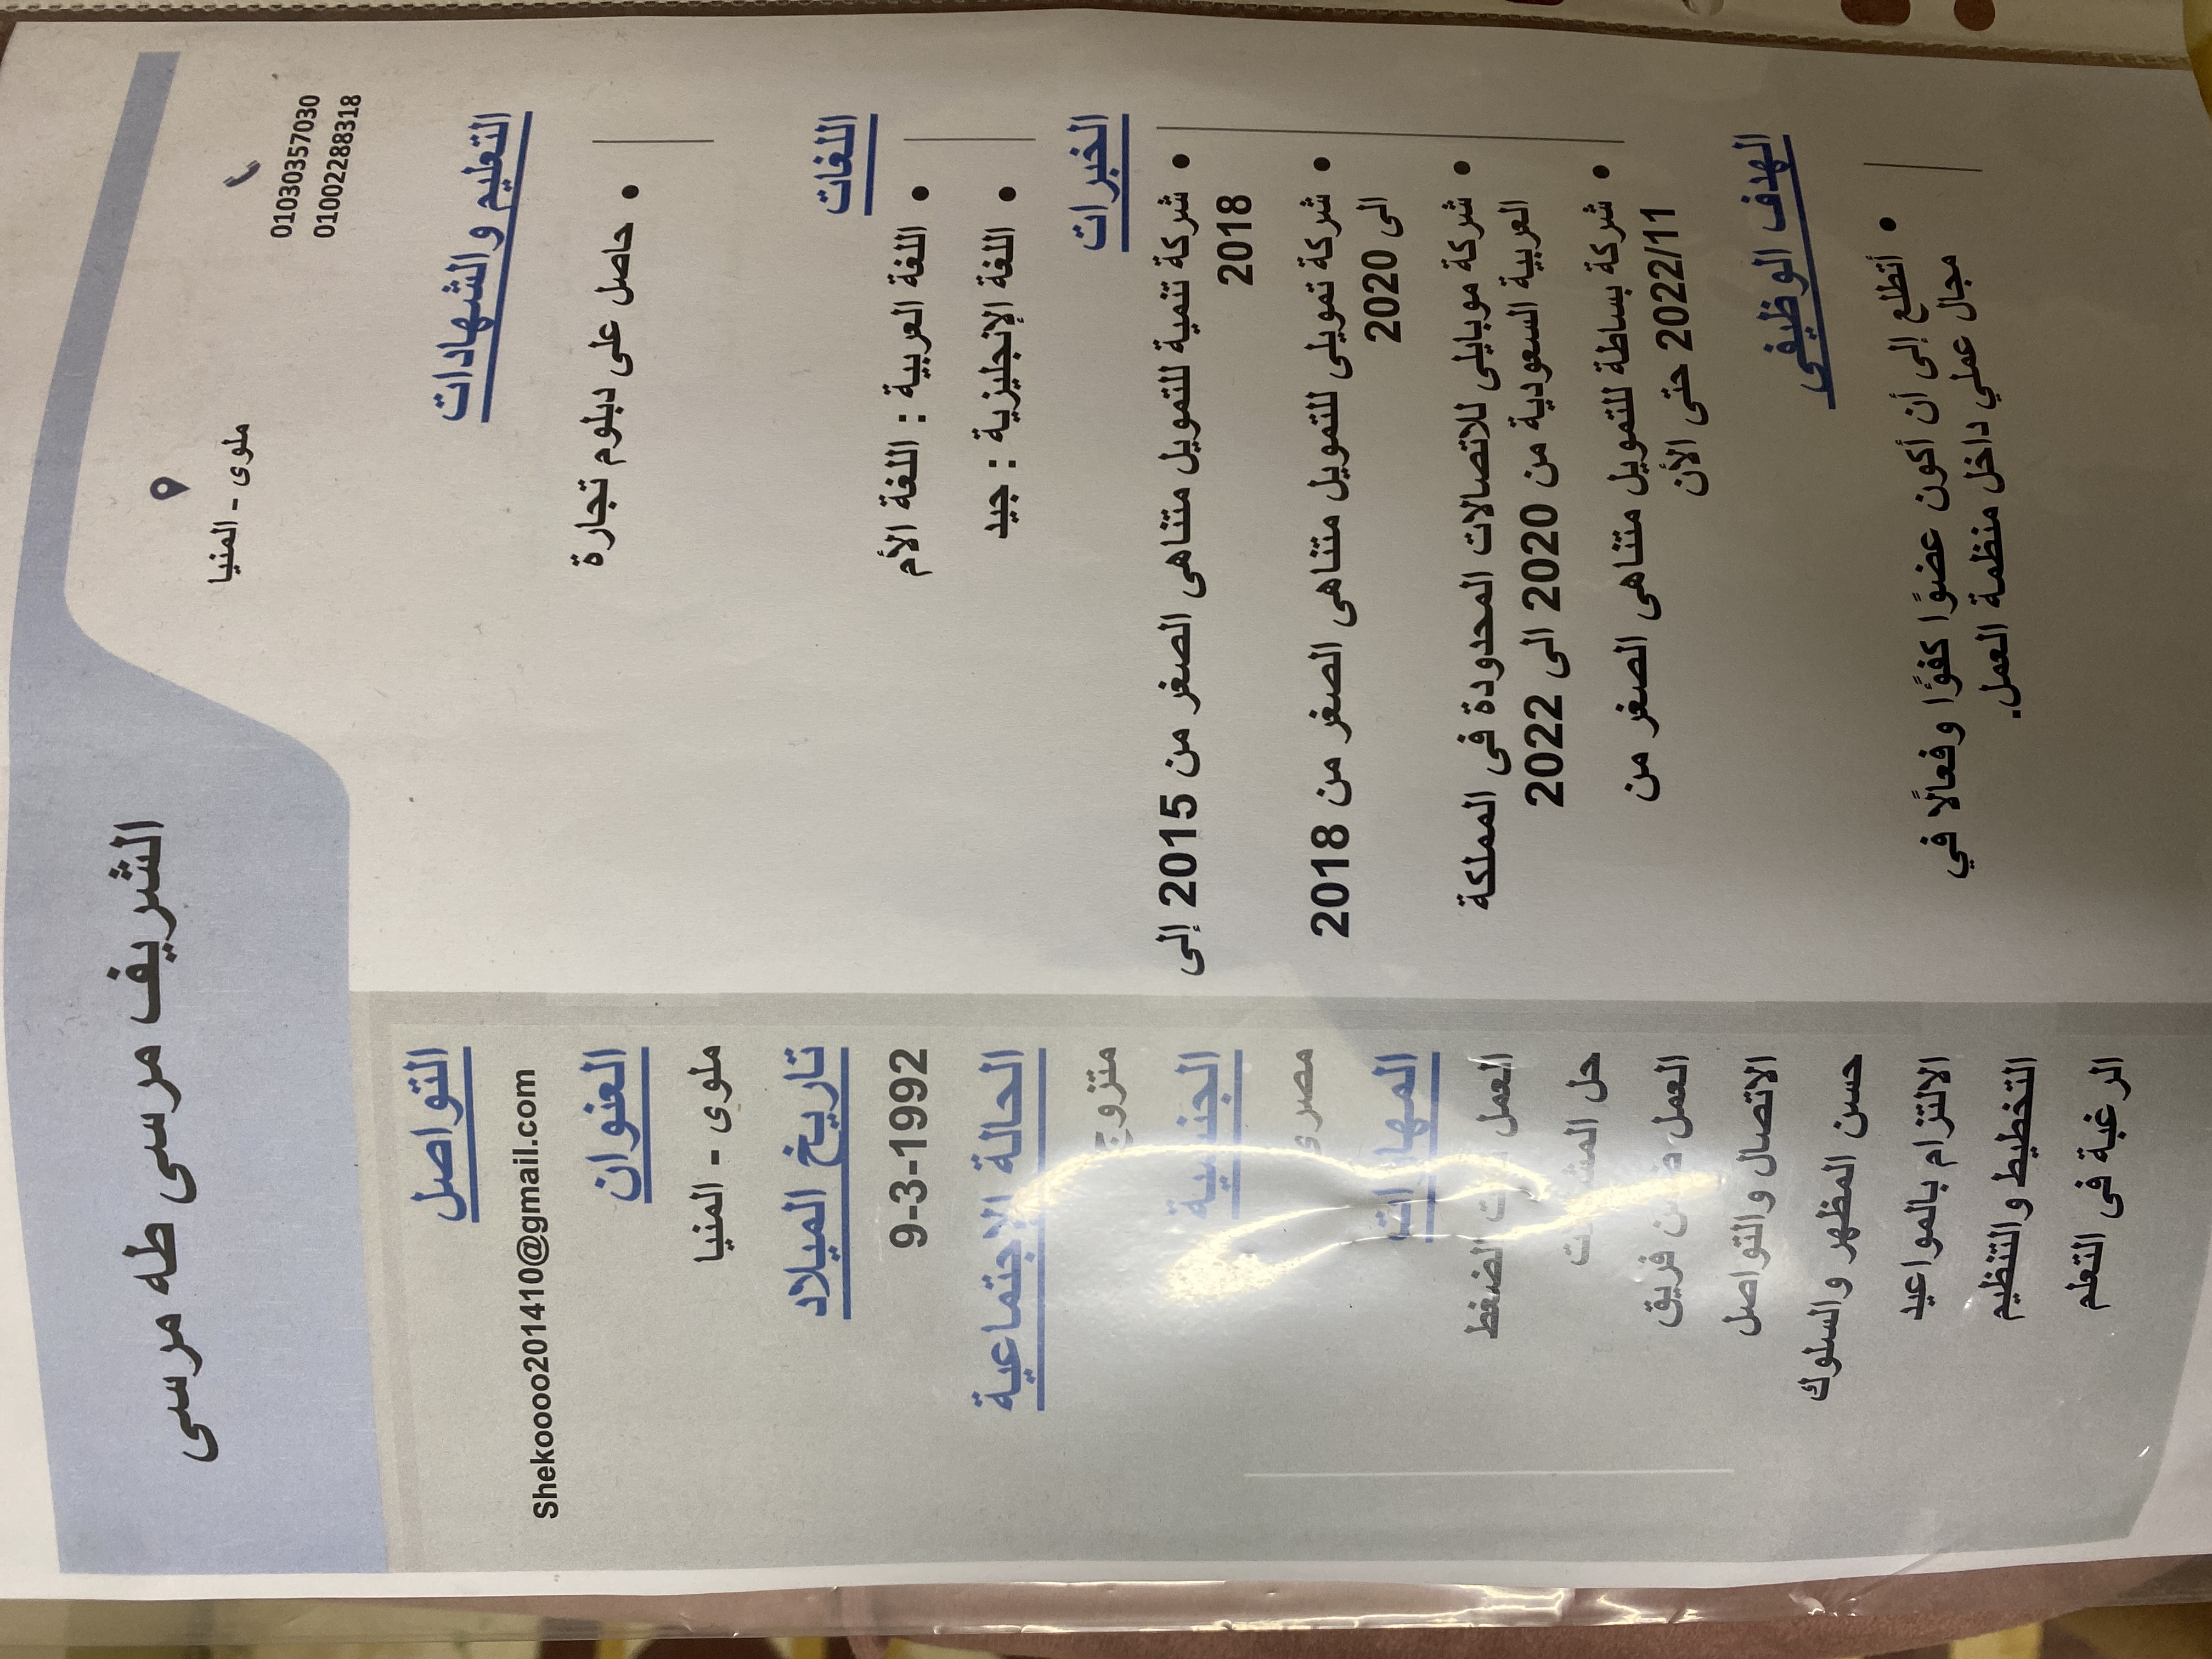 الشريف مرسى طه مرسى
ملوى - المنيا
01030357030
01002288318
التعليم والشهادات
حاصل على دبلوم تجارة
اللغات
اللغة العربية : اللغة الأم
اللغة الإنجليزية : جيد
الخبرات
شركة تنمية للتمويل متناهى الصغر من 2015 إلى
2018
شركة تمويلى للتمويل متناهى الصغر من 2018
الى 2020
شركة موبايلى للاتصالات المحدودة فى المملكة
العربية السعودية من 2020 الى 2022
شركة بساطة للتمويل متناهى الصغر من
2022/11 حتى الأن
الهدف الوظيفى
أتطلع إلى أن أكون عضوًا كفؤًا وفعالًا في
مجال عملي داخل منظمة العمل.
التواصل
Shekoooo201410@gmail.com
العنوان
ملوى - المنيا
تاريخ الميلاد
9-3-1992
الحالة الاجتماعية
متزوج
الجنسية
مصرى
المهارات
العمل الضغط
حل
العمل ضمن فريق
الاتصال والتواصل
حسن المظهر والسلوك
الالتزام بالمواعيد
التخطيط والتنظيم
الرغبة فى التعلم